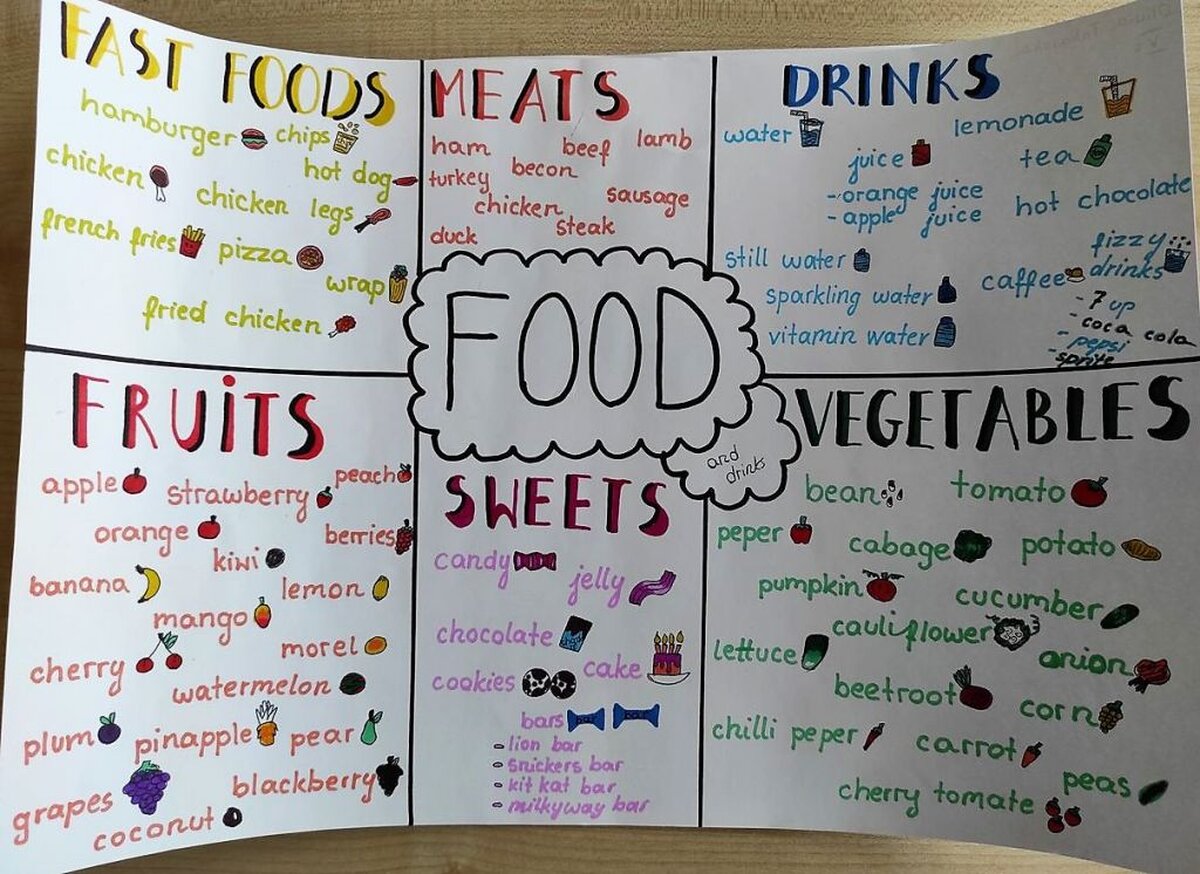 FAST FOODS
hamburger chips
hot dog
chicken
chicken legs
french fries pizza
wrap
fried chicken
MEATS
ham beef lamb
turkey becon
chicken sausage
duck steak
DRINKS
water lemonade
juice tea
- orange juice
- apple juice
hot chocolate
still water
fizzy
drinks
caffee
sparkling water
- 7 up
- coca cola
vitamin water
- pepsi
- sprite
FOOD
and
drinks
FRUiTS
apple strawberry peach
orange berries
kiwi
banana lemon
mango
morel
cherry
watermelon
plum pinapple pear
grapes blackberry
coconut
SWEETS
candy
jelly
chocolate
cake
cookies
bars bar bar
- lion bar
- snickers bar
- kit kat bar
- milkyway bar
VEGETABLES
bean tomato
peper cabage potato
pumpkin cucumber
cauliflower
lettuce anion
beetroot corn
chilli peper carrot
peas
cherry tomate